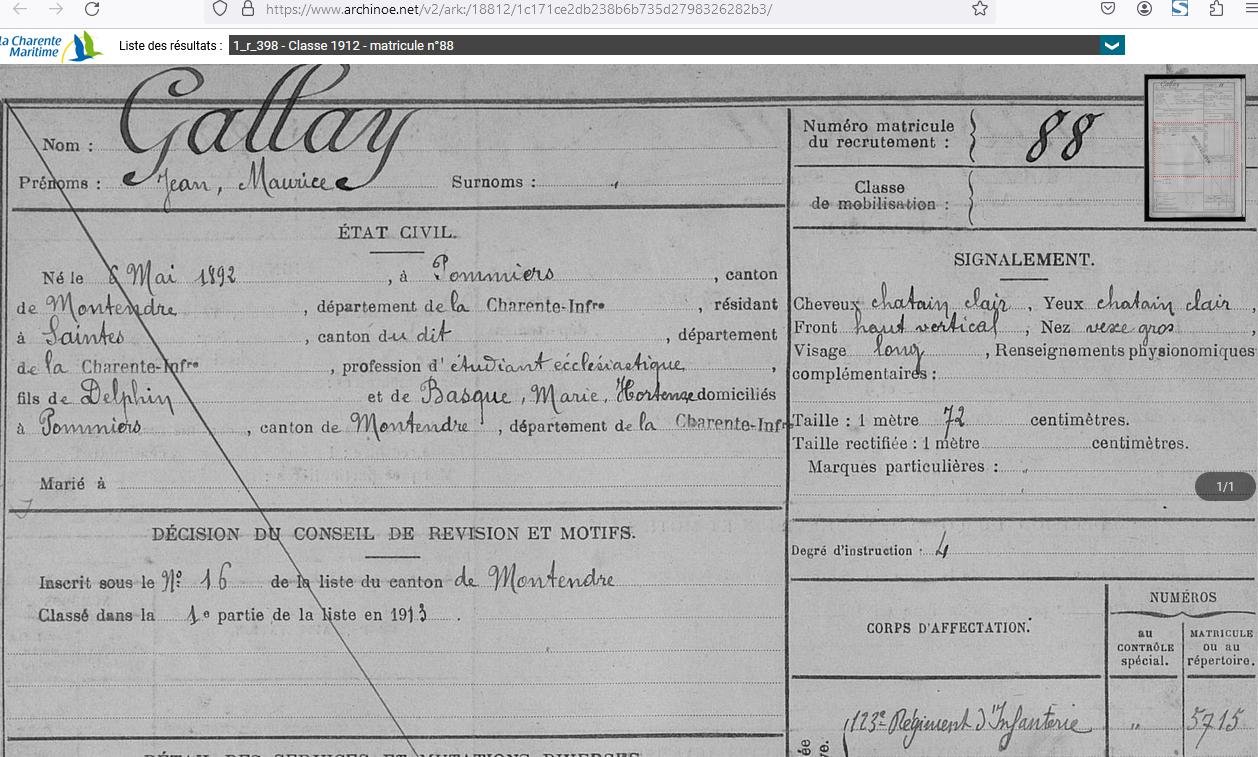 https://www.archinoe.net/v2/ark:/18812/1c171ce2db238b6b735d2798326282b3/
la Charente Maritime
Liste des résultats : 1_r_398 - Classe 1912 - matricule n°88
Nom : Gallay
Prénoms : Jean, Maurice Surnoms : "
ÉTAT CIVIL.
Né le 8 Mai 1892, à Pommiers, canton
de Montendre, département de la Charente-Infre, résidant
à Saintes, canton du dit, département
de la Charente-Infre, profession d'étudiant ecclésiastique,
fils de Delphin et de Basque, Marie, Hortense domiciliés
à Pommiers, canton de Montendre, département de la Charente-Infre
Marié à
DÉCISION DU CONSEIL DE REVISION ET MOTIFS.
Inscrit sous le Nº 16 de la liste du canton de Montendre
Classé dans la 1e partie de la liste en 1913.
DÉTAIL DES SERVICES ET MUTATIONS DIVERSES
Numéro matricule du recrutement : 88
Classe de mobilisation :
SIGNALEMENT.
Cheveux chatain clair, Yeux chatain clair,
Front haut vertical, Nez vexe gros,
Visage long, Renseignements physionomiques
complémentaires :
Taille : 1 mètre 72 centimètres.
Taille rectifiée : 1 mètre centimètres.
Marques particulières :
1/1
Degré d'instruction : 4
CORPS D'AFFECTATION.
NUMÉROS
au CONTRÔLE spécial.
MATRICULE ou au répertoire.
123e Régiment d'Infanterie " 5715